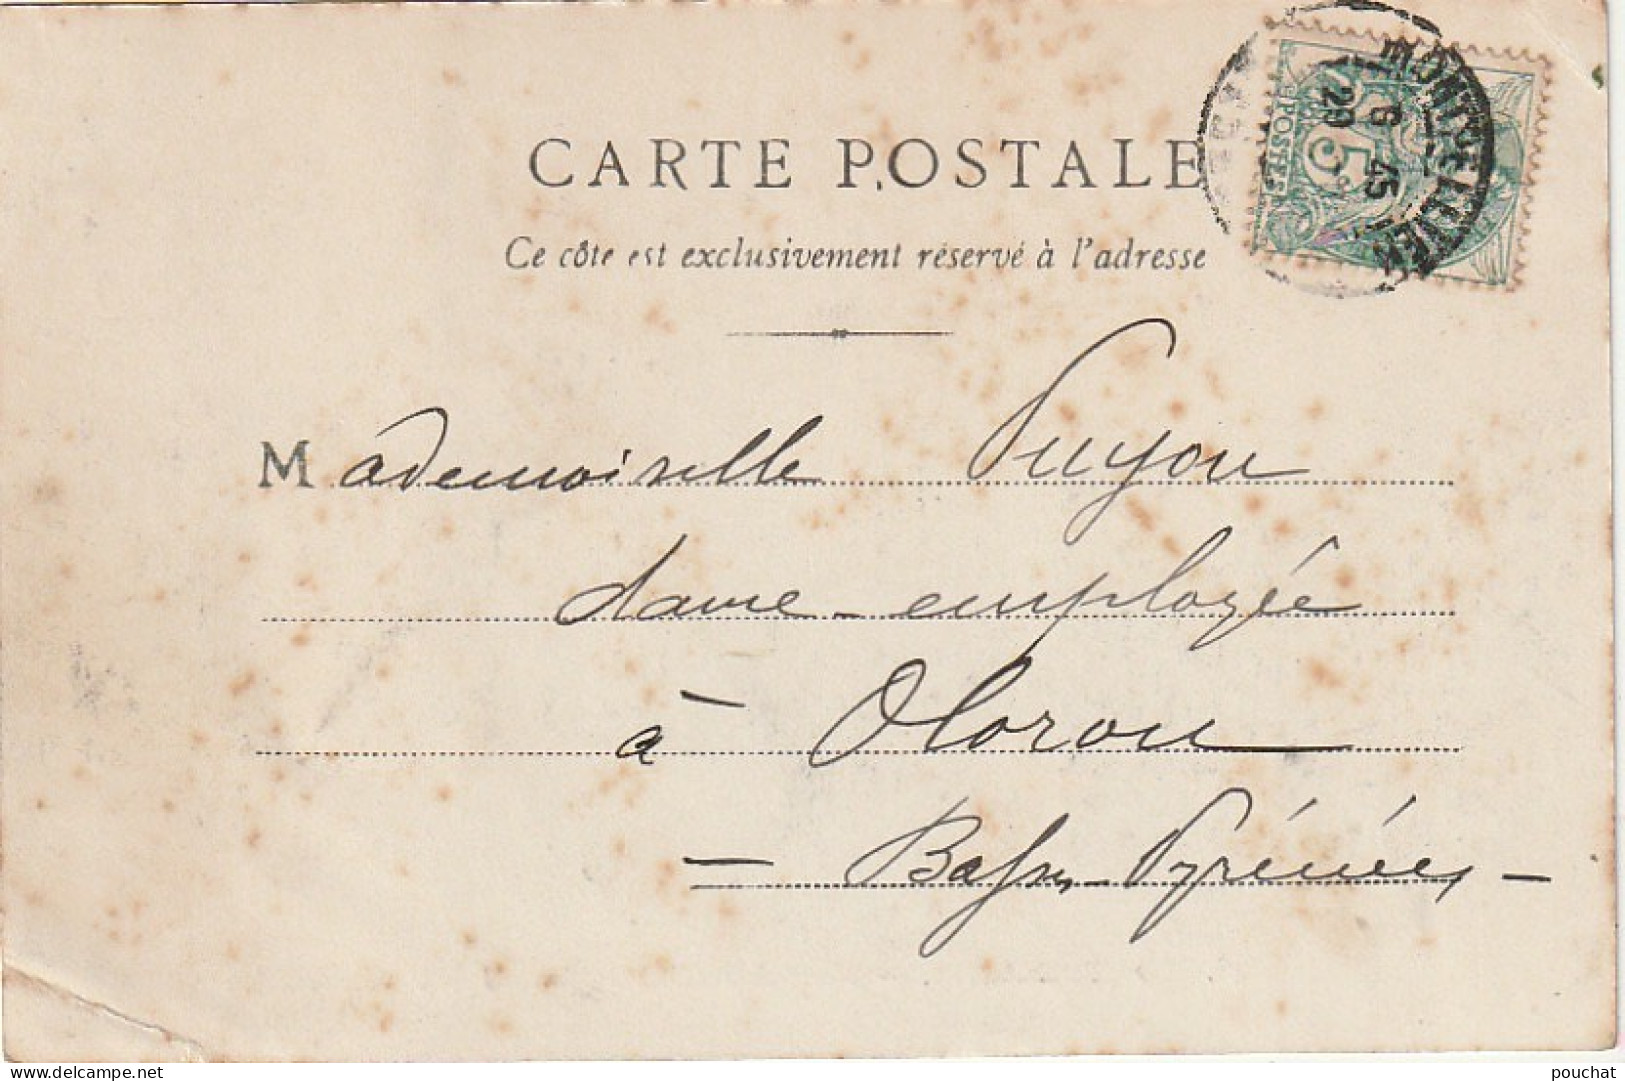 CARTE POSTALE
Ce côté est exclusivement réservé à l'adresse
Mademoiselle Puyou
dame-employée
à Oloron
— Basses-Pyrénées —
MONTPELLIER
6 45
29
5
POSTES
pouchat